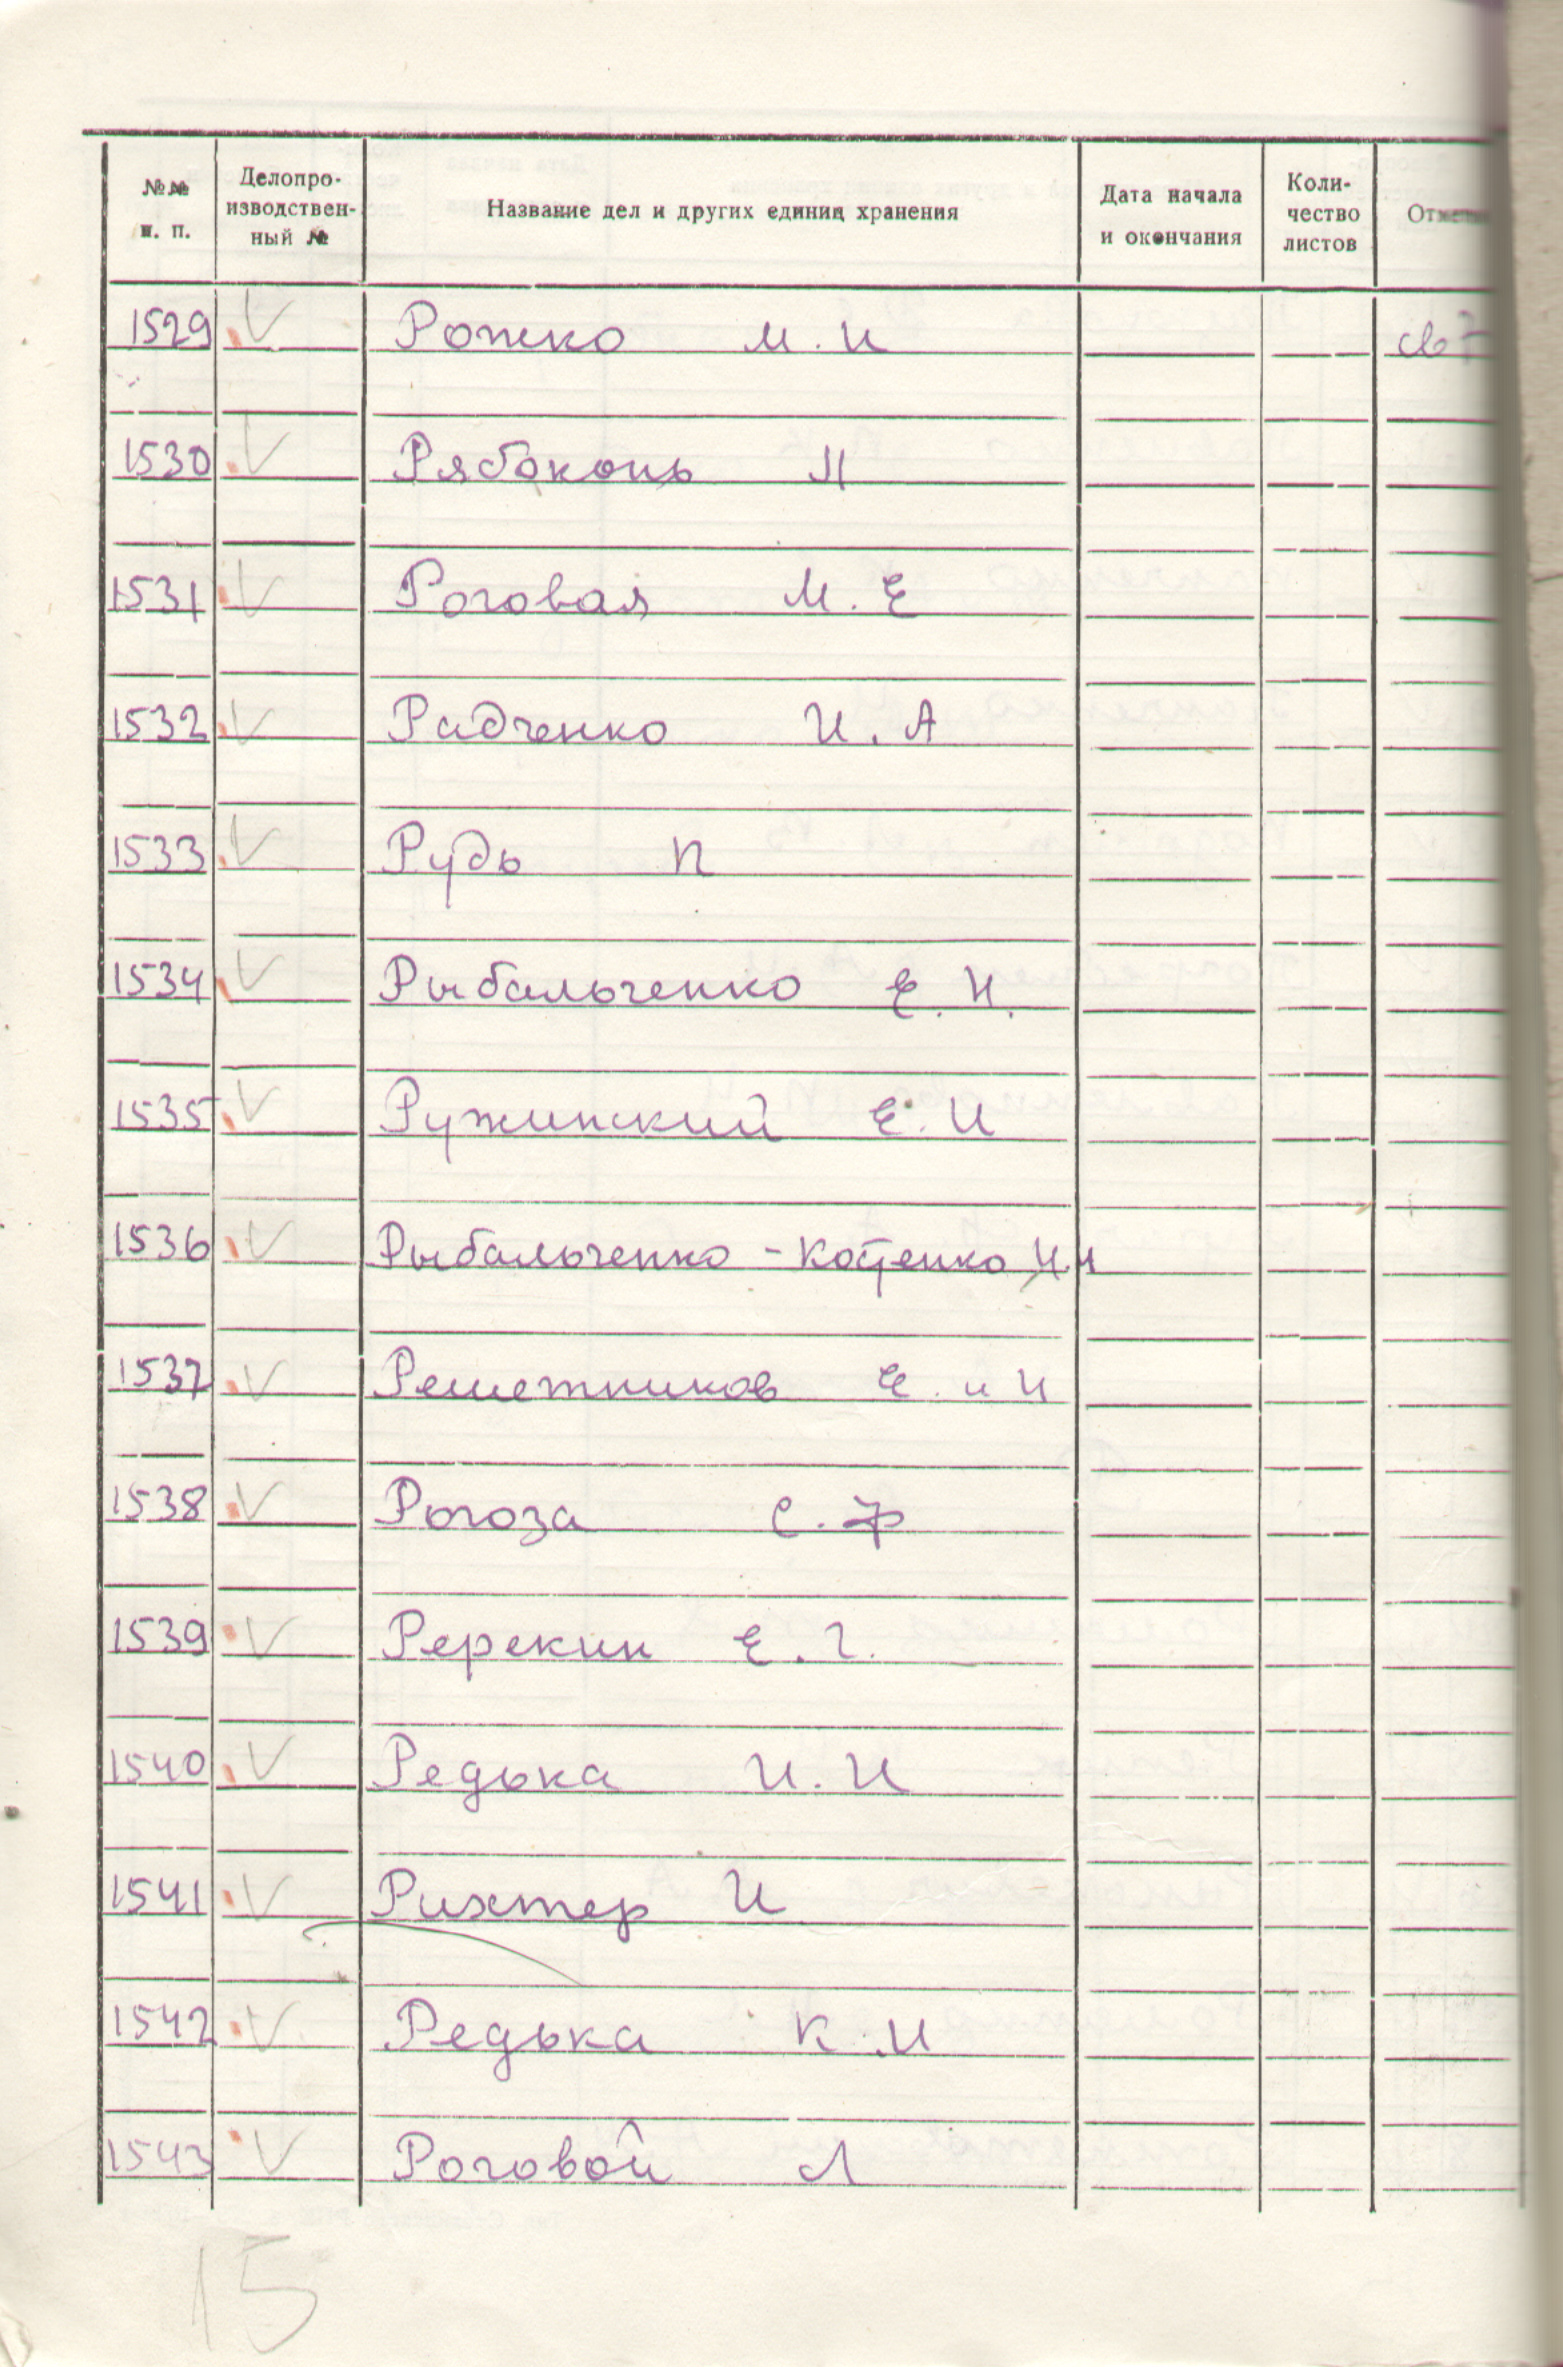 №№ п. п. Делопроизводственный № Название дел и других единиц хранения Дата начала и окончания Количество листов
1529 V Рожко М. И св
1530 V Рябоконь
1531 V Роговая М. Е
1532 V Радченко И. А
1533 V Рудь П
1534 V Рыбальченко Е. И.
1535 V Ружинский Е. И
1536 V Рыбальченко -
1537 V Решетников Е. и И
1538 V Рогоза С. Ф
1539 V Ререкин Е. Г.
1540 V Редька И. И
1541 V Рихтер И
1542 V Редька К. И
1543 V Роговой Л
15